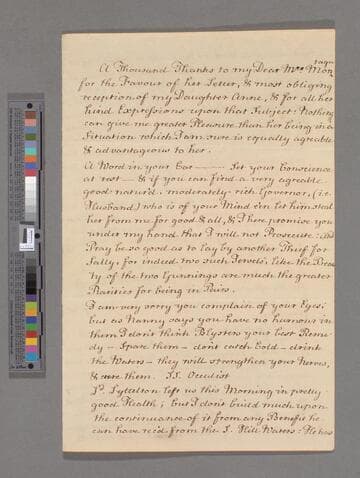 A Thousand Thanks to my Dear Mrs. Mon
tagu
for the Favour of her Letter, & most obliging
reception of my Daughter Anne, & for all her
kind Expressions upon that Subject: Nothing
can give me greater Pleasure than her being in a
Situation which I am sure is equally agreeable
& advantageous to her.
A Word in your Ear —— Set your Conscience
at rest — & if you can find a very agreeable
good-natur'd, moderately-rich Governor, (i.e.
Husband) who is of your Mind ev'n let him steal
her from me for good & all, & I here promise you
under my hand that I will not Prosecute: And
Pray be so good as to lay by another Thief for
Sally; for indeed two such Jewels, like the Beau
ty of the two Gunnings are much the greater
Rarities for being in Pairs.
I am very sorry you complain of your Eyes;
but as Nanny says you have no humour in
them I don't think Blysters your best Reme
dy — Spare them — don't catch Cold — drink
the Waters — they will strengthen your Nerves,
& cure them. J.J. Occulist
Ld. Lyttelton left us this Morning in pretty
good Health; but I don't build much upon
the continuance of it from any Benefit he
can have rec'd from the S. Hill Waters: He has